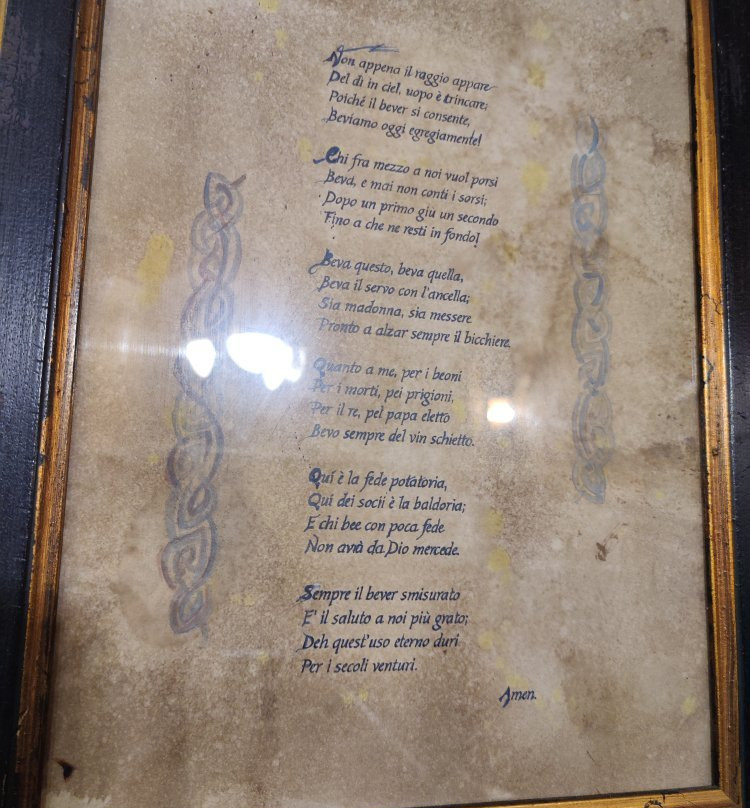 Non appena il raggio appare
Del dì in ciel, uopo è trincare;
Poiché il bever si consente,
Beviamo oggi egregiamente!
Chi fra mezzo a noi vuol porsi
Beva, e mai non conti i sorsi;
Dopo un primo giu un secondo
Fino a che ne resti in fondo!
Beva questo, beva quella,
Beva il servo con l'ancella;
Sia madonna, sia messere
Pronto a alzar sempre il bicchiere.
Quanto a me, per i beoni
Per i morti, pei prigioni,
Per il re, pel papa eletto
Bevo sempre del vin schietto.
Quí è la fede potatoria,
Qui dei socii è la baldoria;
E chi bee con poca fede
Non avrà da Dio mercede.
Sempre il bever smisurato
E' il saluto a noi più grato;
Deh quest'uso eterno duri
Per i secoli venturi.
Amen.